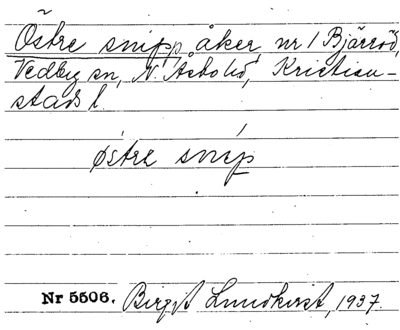 Östre snipp, åker, nr 1 Bjärröd,
Vedby sn, N. Åsbo hd, Kristian-
stads l.
østre snip
Nr 5506. Birgit Lundkvist, 1937.